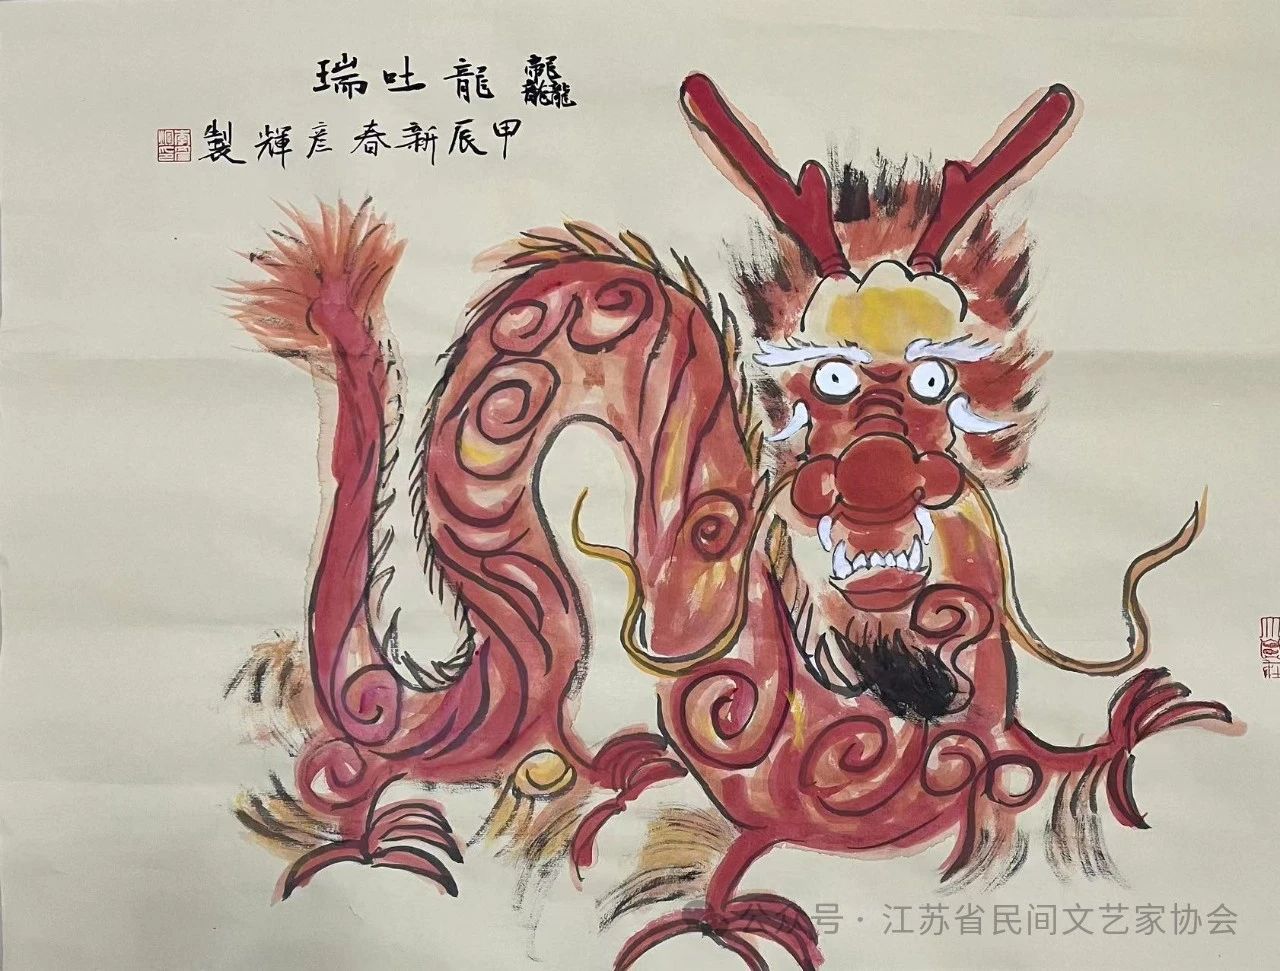 龘龍吐瑞
甲辰新春彦輝製
公众号 · 江苏省民间文艺家协会